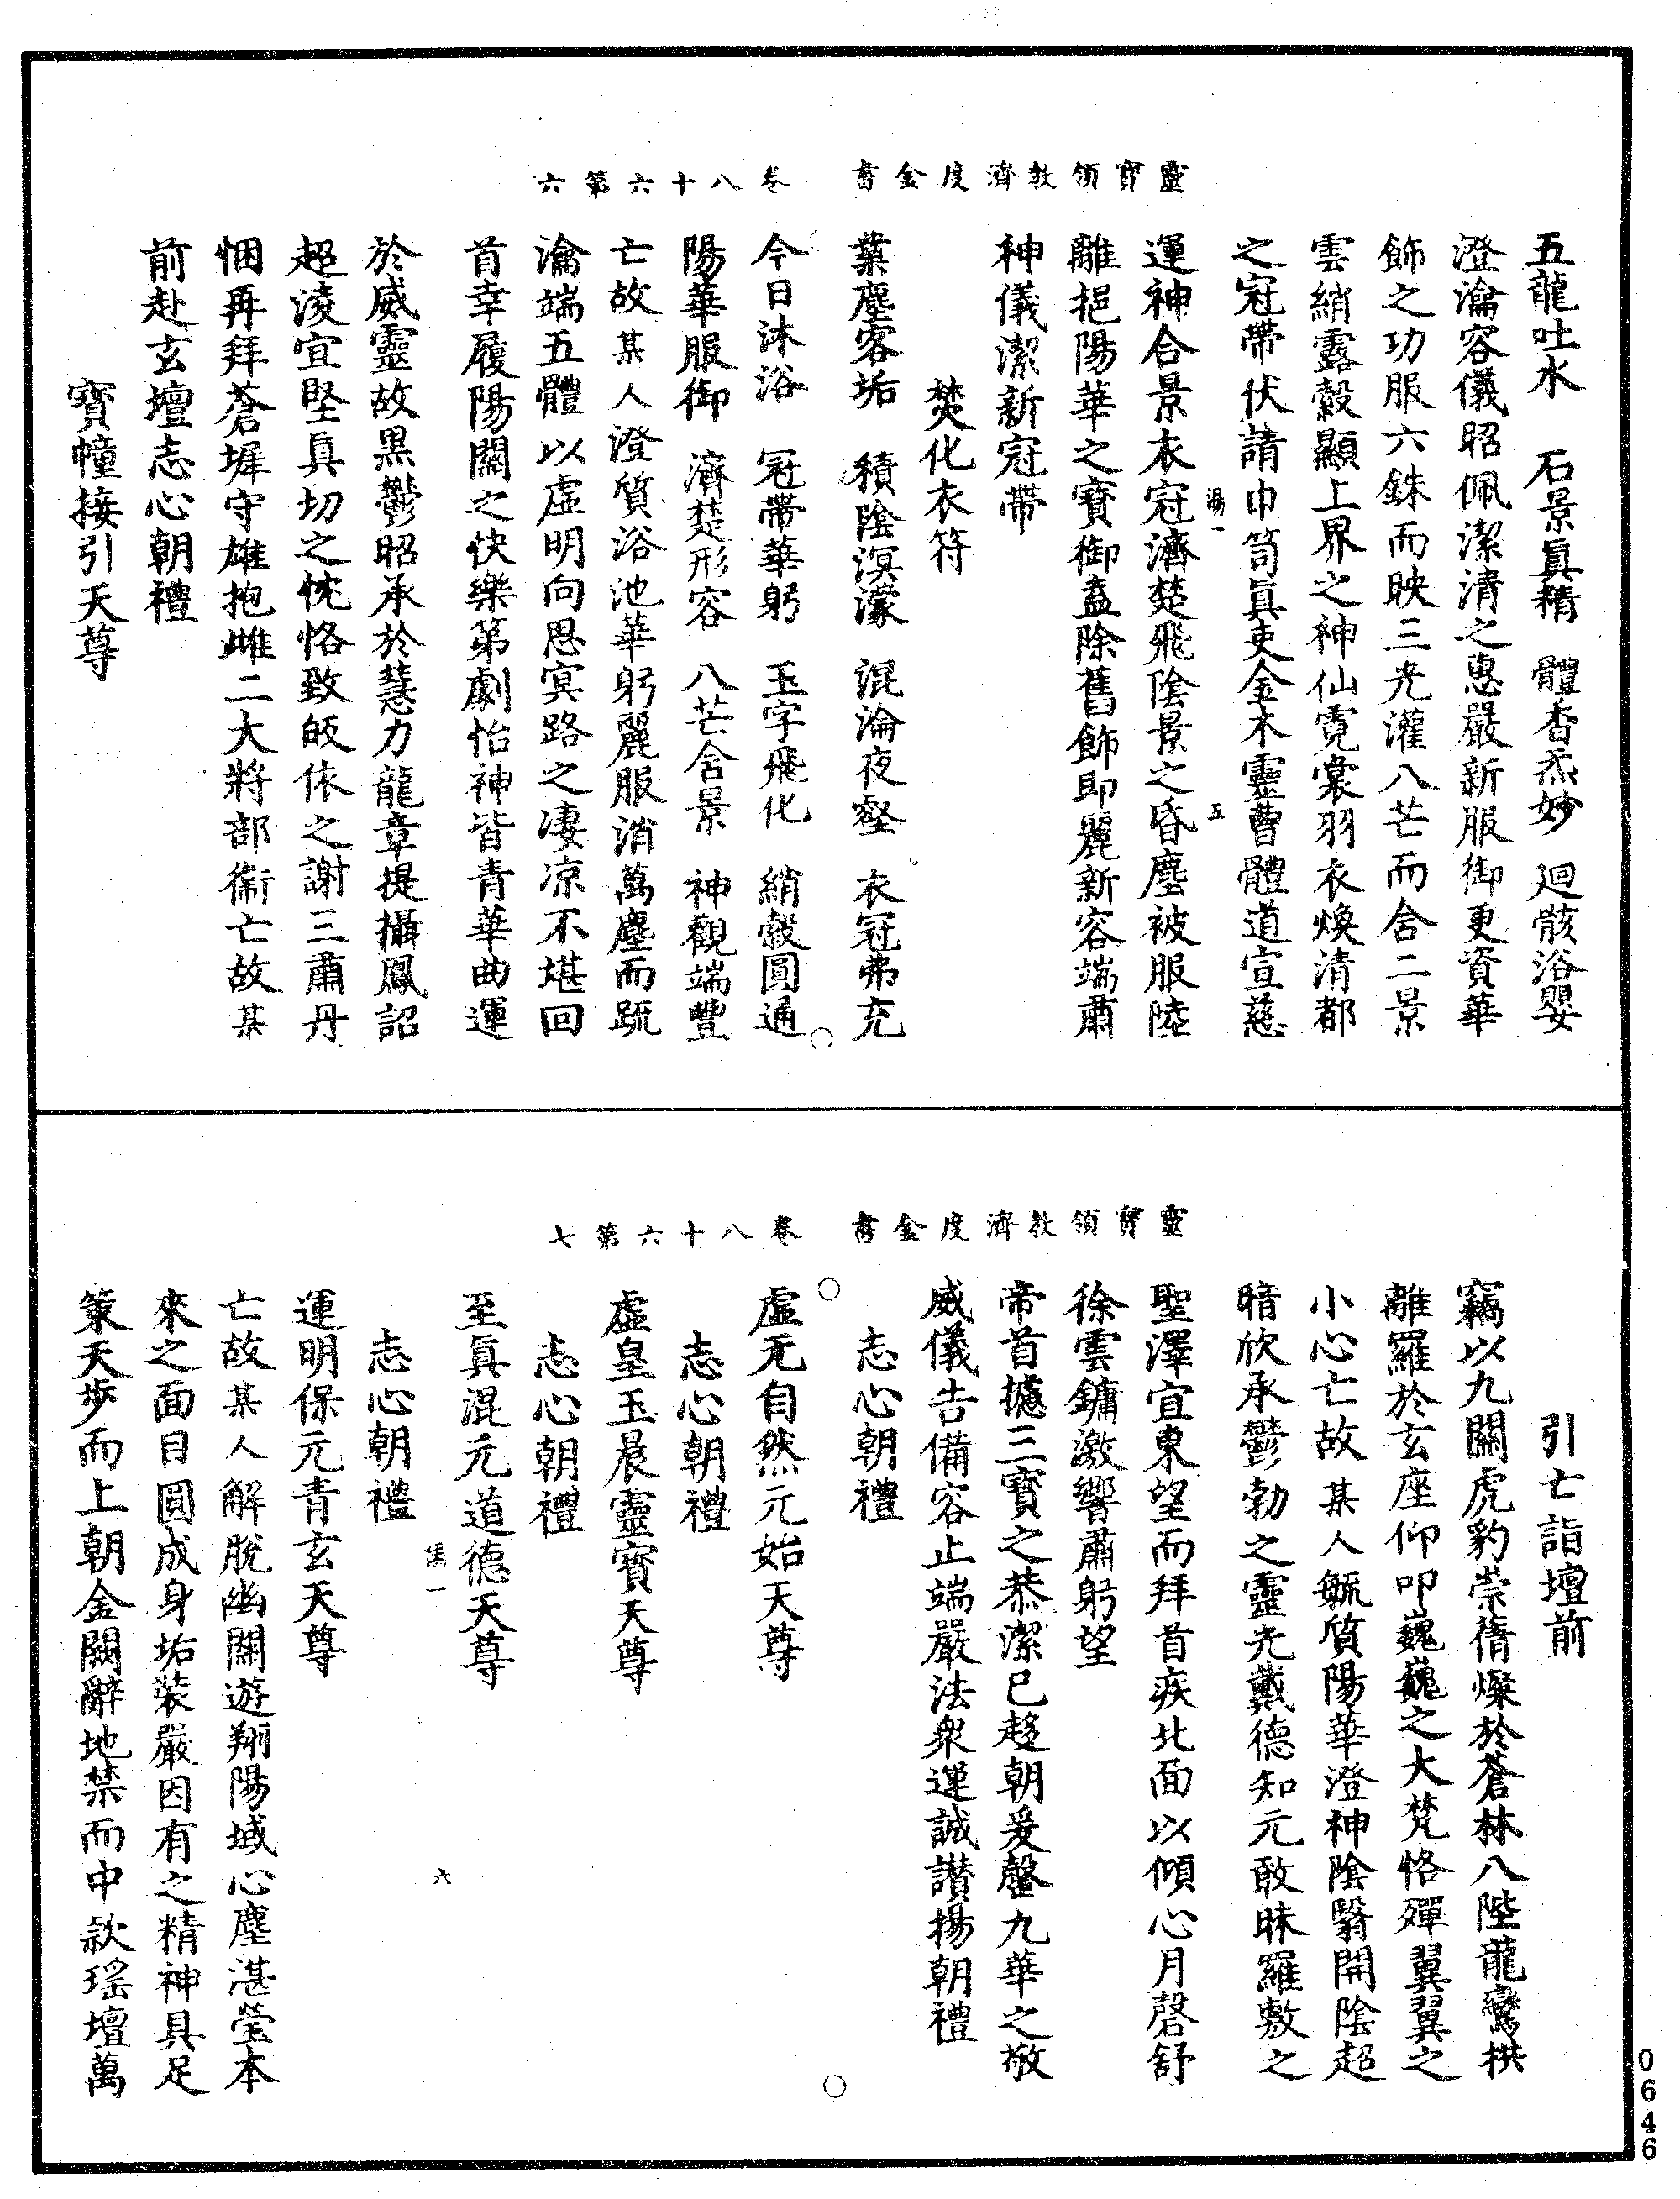 靈寶領教濟度金書　卷八十六第六
五龍吐水　石景真精　體香炁妙　廻骸浴嬰
澄瀹容儀昭佩潔清之惠嚴新服御更資華
飾之功服六銖而映三光灌八芒而含二景
雲綃露縠顯上界之神仙霓裳羽衣煥清都
之冠帶伏請巾笥真吏金木靈曹體道宣慈
運神合景衣冠濟楚飛陰景之昏塵被服陸
離挹陽華之寶御蓋除舊飾即麗新容端肅
神儀潔新冠帶
焚化衣符
業塵客垢　積陰溟濛　混淪夜壑　衣冠弗充
今日沐浴　冠帶華躬　玉字飛化　綃縠圓通
陽華服御　濟楚形容　八芒含景　神觀端豐
亡故某人澄質浴池華躬麗服消萬塵而䟽
瀹端五體以虛明向思冥路之淒凉不堪回
首幸履陽關之快樂第劇怡神皆青華曲運
於威靈故黑鬱昭承於慧力龍章提攝鳳詔
超淩宜堅真切之忱恪致皈依之謝三肅丹
悃再拜蒼墀守雄抱雌二大將部衛亡故某
前赴玄壇志心朝禮
寶幢接引天尊
靈寶領教濟度金書　卷八十六第七
引亡詣壇前
竊以九關虎豹崇脩燦於蒼林八陛龍鸞拱
離羅於玄座仰叩巍巍之大梵恪殫翼翼之
小心亡故某人毓質陽華澄神陰翳開陰超
暗欣承鬱勃之靈光戴德知元敢昧羅敷之
聖澤宜東望而拜首疾北面以傾心月磬舒
徐雲鏞激響肅躬望
帝首攄三寶之恭潔已趍朝爰罄九華之敬
威儀告備容止端嚴法衆運誠讚揚朝禮
志心朝禮
虛无自然元始天尊
志心朝禮
虛皇玉晨靈寶天尊
志心朝禮
至真混元道德天尊
志心朝禮
運明保元青玄天尊
亡故某人解脫幽關遊翔陽域心塵湛瑩本
來之面目圓成身垢裝嚴因有之精神具足
策天步而上朝金闕辭地禁而中款瑤壇萬
0646